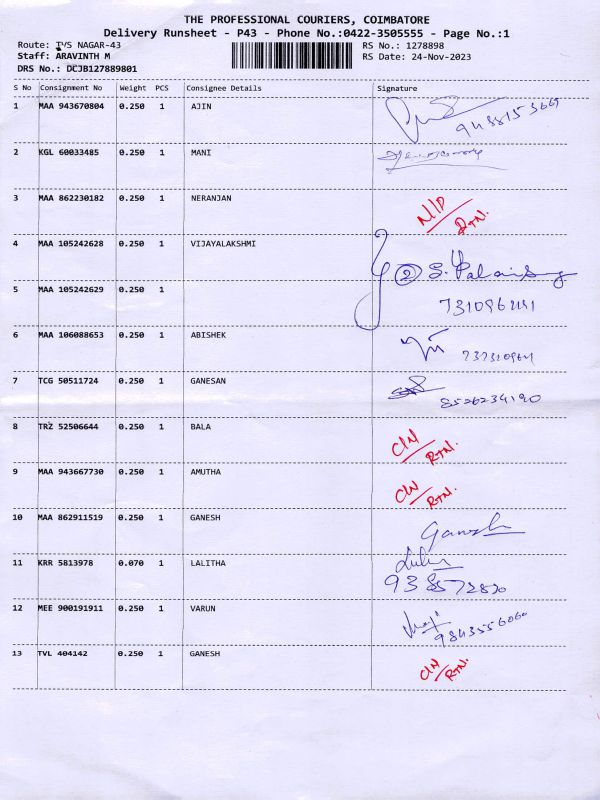 THE PROFESSIONAL COURIERS, COIMBATORE
Delivery Runsheet - P43 - Phone No.:0422-3505555 - Page No.:1
Route: TVS NAGAR-43 RS No.: 1278898
Staff: ARAVINTH M RS Date: 24-Nov-2023
DRS No.: DCJB127889801
S No Consignment No Weight PCS Consignee Details Signature
1 MAA 943670804 0.250 1 AJIN
2 KGL 60033485 0.250 1 MANI
3 MAA 862230182 0.250 1 NERANJAN N/D
RTN.
4 MAA 105242628 0.250 1 VIJAYALAKSHMI
② S.
5 MAA 105242629 0.250 1
6 MAA 106088653 0.250 1 ABISHEK
7 TCG 50511724 0.250 1 GANESAN
8526234190
8 TRZ 52506644 0.250 1 BALA C/N
RTN.
9 MAA 943667730 0.250 1 AMUTHA C/N
RTN.
10 MAA 862911519 0.250 1 GANESH Ganesh
11 KRR 5813978 0.070 1 LALITHA
12 MEE 900191911 0.250 1 VARUN
9843556060
13 TVL 404142 0.250 1 GANESH C/N
RTN.